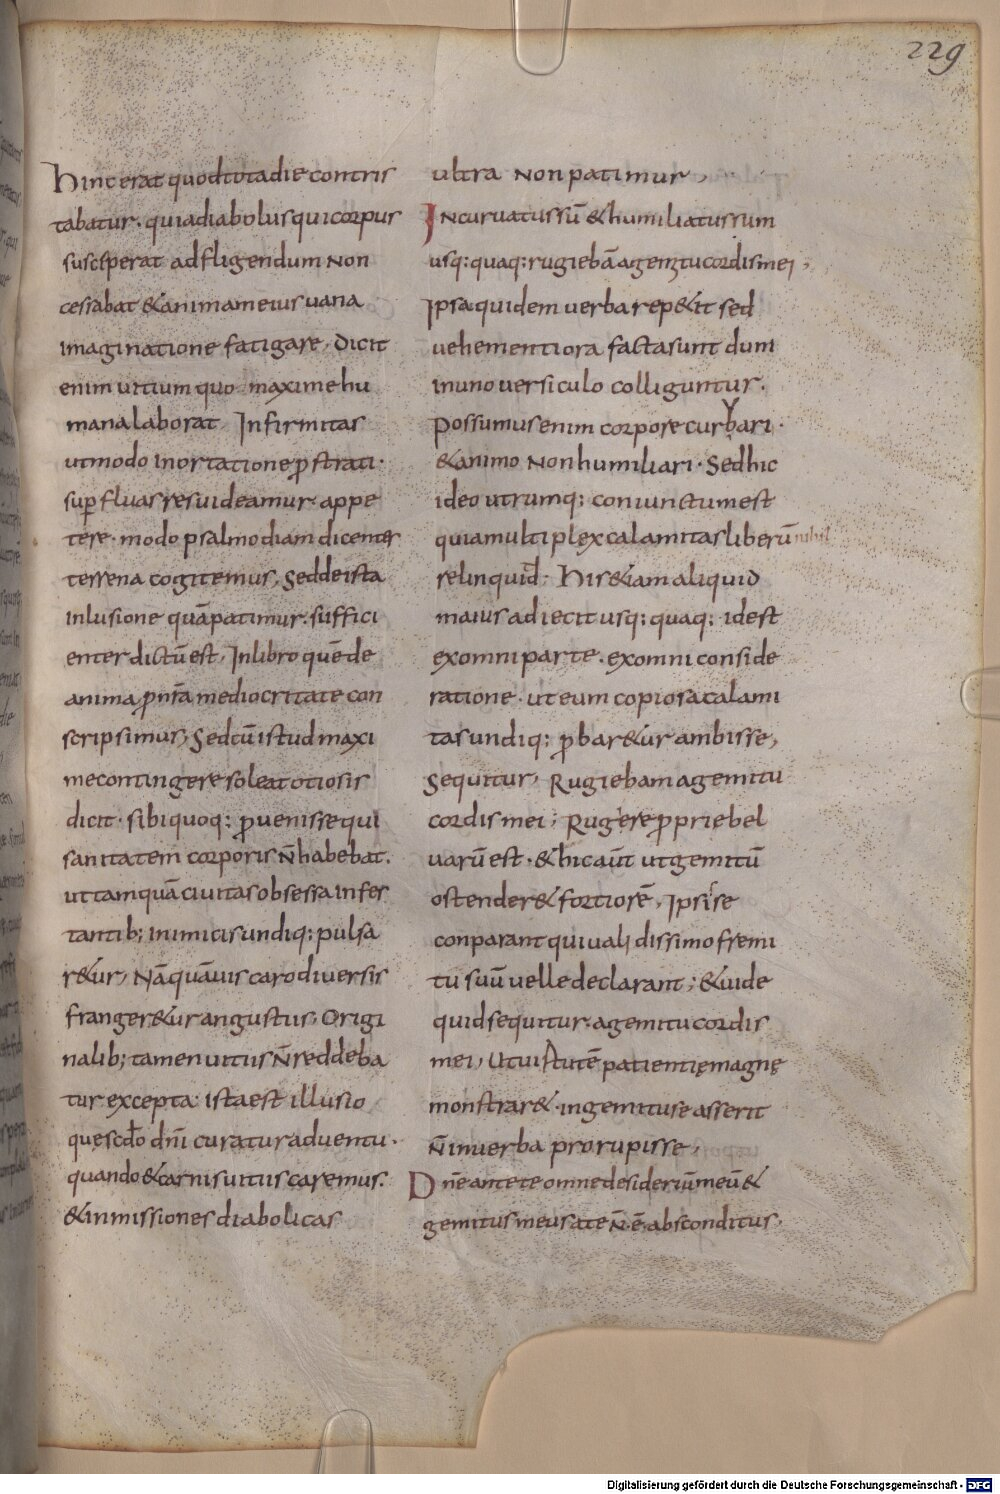 229
Hinc erat quod tota die contris
tabatur. quia diabolus qui corpus
susceperat adfligendum Non
cessabat & animam eius uana
imaginatione fatigare, Dicit
enim uitium quo maxime hu
mana laborat Infirmitas
ut modo in ortatione p̄strati.
sup̄ fluas res uideamur appe
tere. modo psalmodiam dicentes
terrena cogitemus, Sed de ista
inlusione quā patimur. suffici
enter dictū est, In libro quē de
anima p̄ nr̄a mediocritate con
scripsimus, Sed cū istud maxi
me contingere soleat otiosis
dicit. sibi quoq: puenisse qui
sanitatem corporis N̄ habebat.
ut tamquā ciuitas obsessa infes
tantib; inimicis undiq: pulsa
r&ur, Nā quāuis caro diuersis
franger&ur angustiis, Origi
nalib; tamen uitiis N̄ reddeba
tur excepta. ista est illusio
que scd̄o dn̄i curatur aduentu.
quando & carnis uitiis caremus.
& inmissiones diabolicas
ultra Non patimur,
Incuruatus sū & humiliatus sum
usq: quaq: rugiebā a gemitu cordis mei,
Ipsa quidem uerba rep&it sed
uehementiora facta sunt dum
in uno uersiculo colliguntur.
Possumus enim corpore curbari.
& animo Non humiliari. Sed hic
ideo utrumq: coniunctum est
quia multiplex calamitas liberū nihil
relinquid. His &iam aliquid
maius adiecit usq: quaq: id est
ex omni parte. ex omni conside
ratione. ut eum copiosa calami
tas undiq: pbar&ur ambisse,
Sequitur, Rugiebam a gemitu
cordis mei, Rugere pprie bel
uarū est. & hic aūt ut gemitū
ostender& fortiorē, Ipsi se
conparant qui ualidissimo fremi
tu suū uelle declarant; & uide
quid sequitur. a gemitu cordis
mei, Ut uirtutē patientię magnę
monstrar& . ingemituse asserit
N̄ in uerba prorupisse,
Dn̄e ante te omne desideriū meū &
gemitus meus a te N̄ ē absconditus,
Digitalisierung gefördert durch die Deutsche Forschungsgemeinschaft - DFG